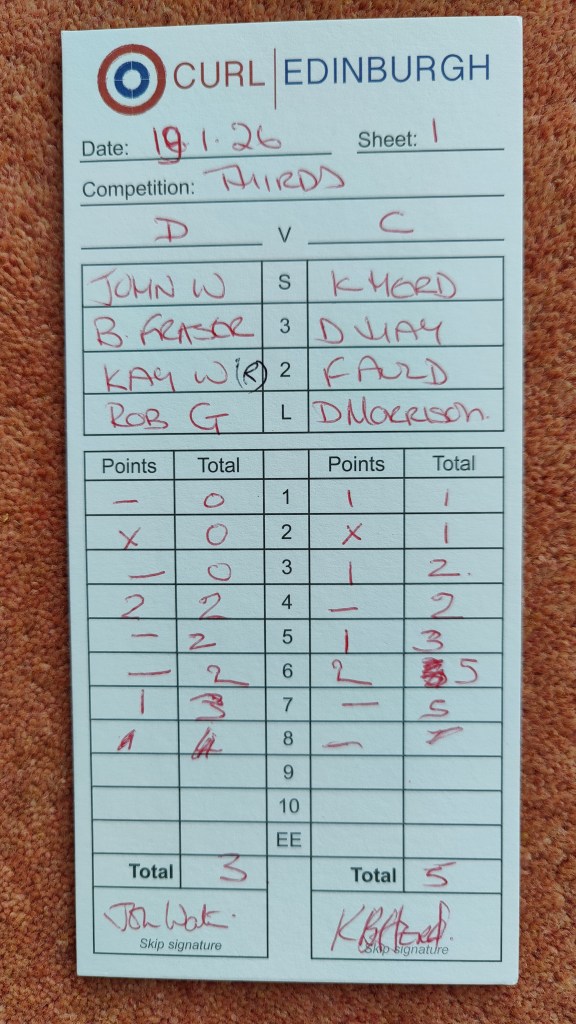 CURL EDINBURGH
Date: 19.1.26 Sheet: 1
Competition: THIRDS
D V C
JOHN W S K HORD
B. FRASER 3 D HAY
KAY W (R) 2 F AULD
ROB G L D MORRISON.
Points Total Points Total
– 0 1 1 1
X 0 2 X 1
– 0 3 1 2.
2 2 4 – 2
– 2 5 1 3
– 2 6 2 5
1 3 7 – 5
1 4 8 –
9
10
EE
Total 3 Total 5
Skip signature Skip signature